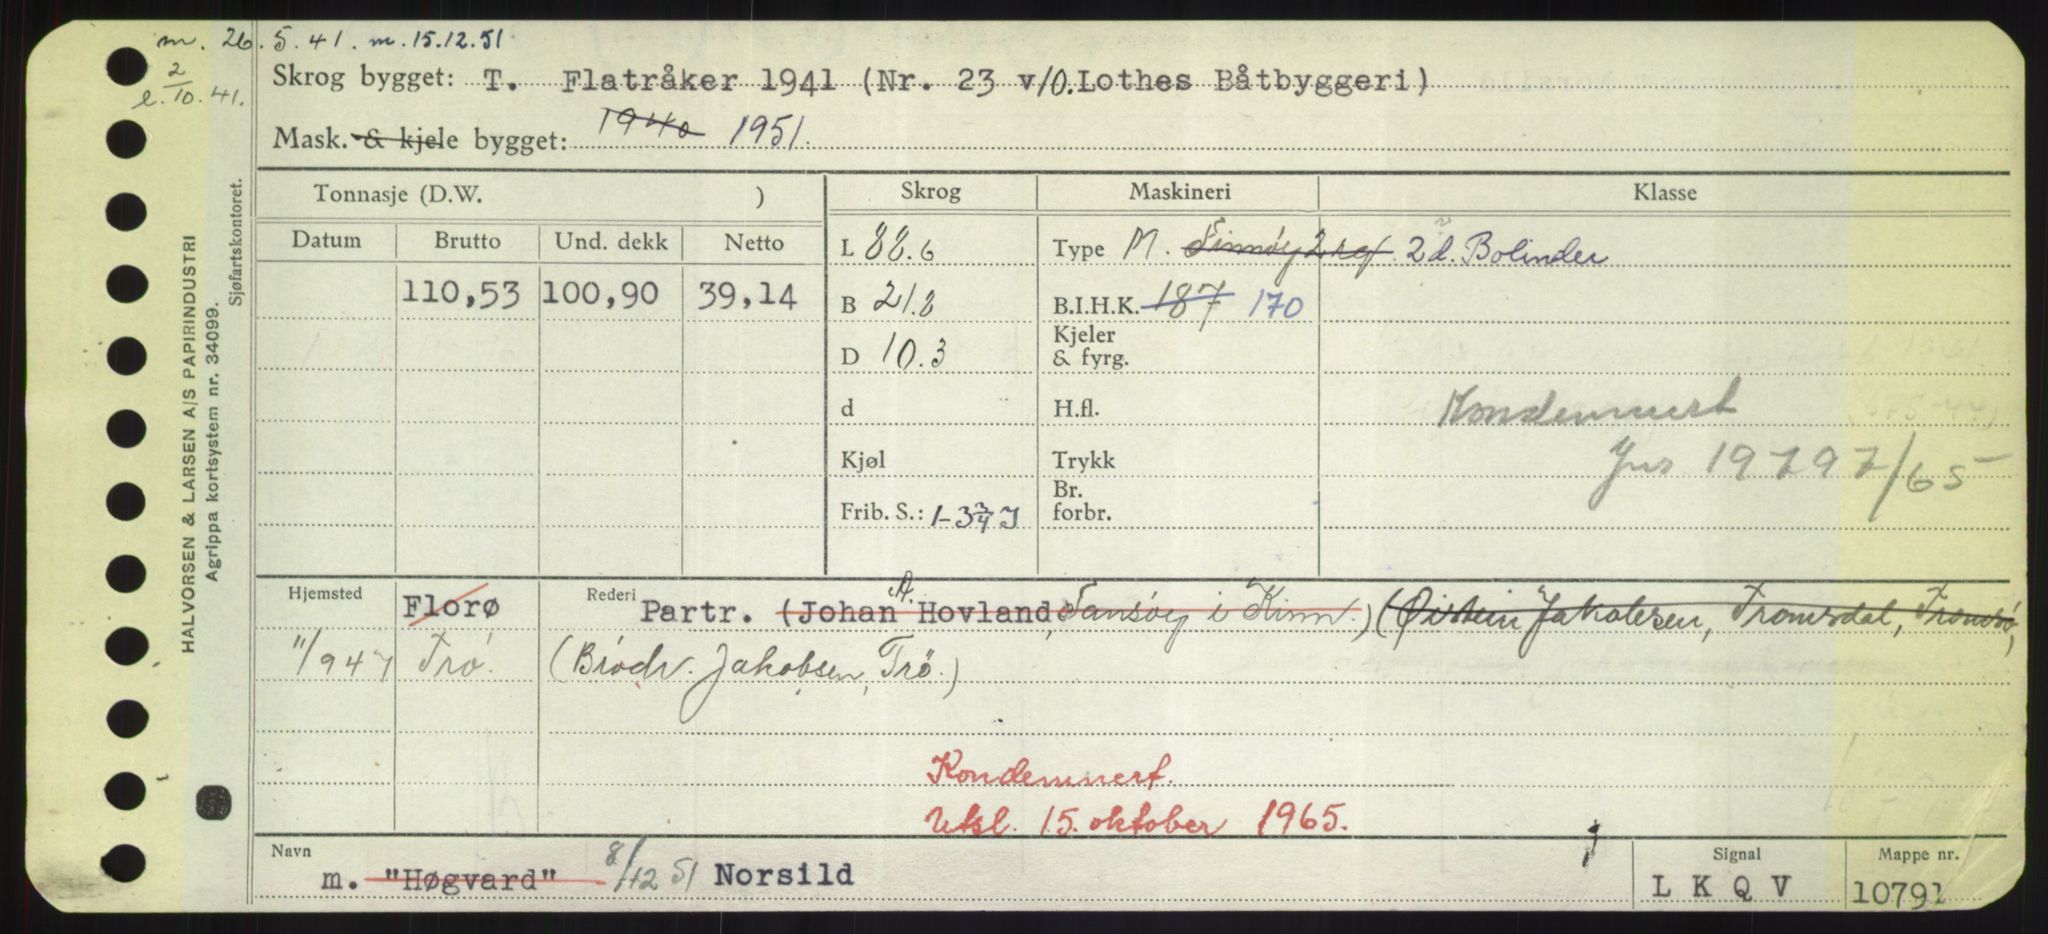 m. 26.5.41. m. 15.12.51
2/10.41.
Skrog bygget: T. Flatråker 1941 (Nr. 23 v/O. Lothes Båtbyggeri)
Mask. & kjele bygget: 1940 1951.
HALVORSEN & LARSEN A/S PAPIRINDUSTRI
Agrippa kortsystem nr. 34099.
Sjøfartskontoret.
Tonnasje (D.W. ) Skrog Maskineri Klasse
Datum Brutto Und. dekk Netto
L 88.6 Type M. 2 d. Bolinder
110,53 100,90 39,14 B 21.2 B.I.H.K. 187 170
D 10.3 Kjeler & fyrg.
d H.fl. Kondemnert
Kjøl Trykk Jrs 19797/65
Frib. S.: 1-3 3/4 J Br. forbr.
Hjemsted Florø Rederi Partr. (Johan A. Hovland, Fansøy i Kinn.) (Øistein Jakobsen, Tromsdal, Tromsø,
11/947 Trø. (Brødr. Jakobsen, Trø.)
Kondemnert.
Utsl. 15. oktober 1965.
Navn Signal Mappe nr.
m. "Høgvard" 8/12 51 Norsild L K Q V 10791